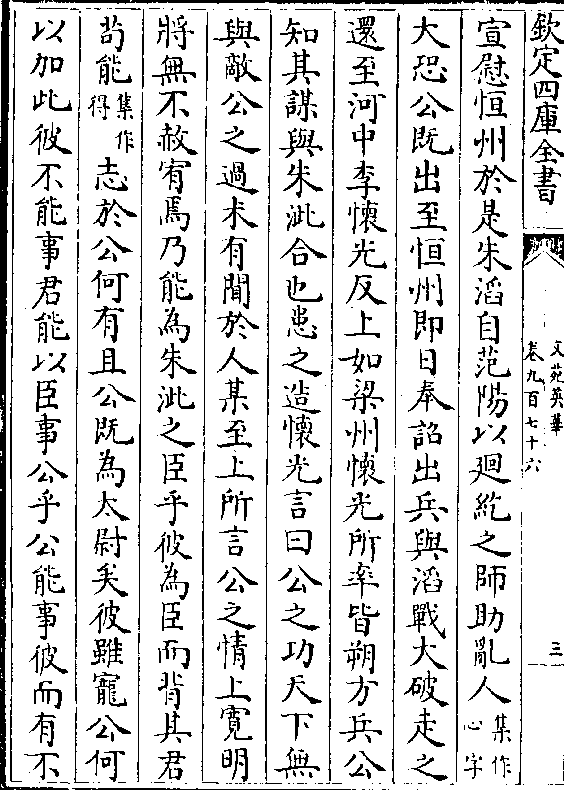 欽定四庫全書
文苑英華
卷九百七十六
三
宣慰恒州於是朱滔自范陽以廻紇之師助亂人集作心字
大恐公既出至恒州即日奉詔出兵與滔戰大破走之
還至河中李懷光反上如梁州懷光所率皆朔方兵公
知其謀與朱泚合也患之造懷光言曰公之功天下無
與敵公之過未有聞於人某至上所言公之情上寛明
將無不赦宥焉乃能為朱泚之臣乎彼為臣而背其君
苟能集作得志於公何有且公既為太尉矣彼雖寵公何
以加此彼不能事君能以臣事公乎公能事彼而有不